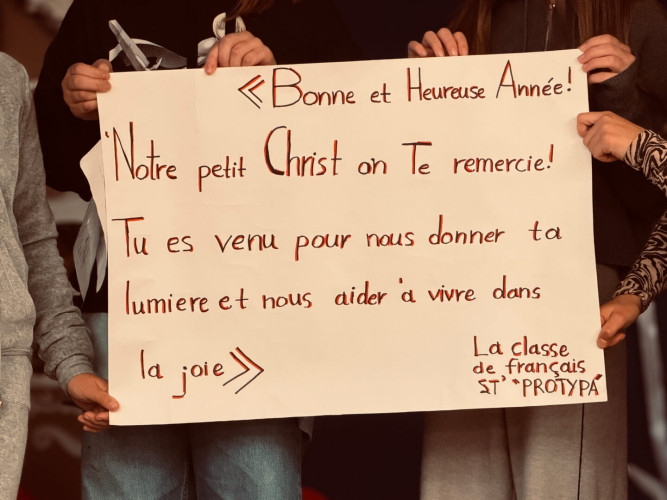 « Bonne et Heureuse Année!
Notre petit Christ on Te remercie!
Tu es venu pour nous donner ta
lumiere et nous aider à vivre dans
la joie »
La classe
de français
ΣΤ' "PROTYPA"